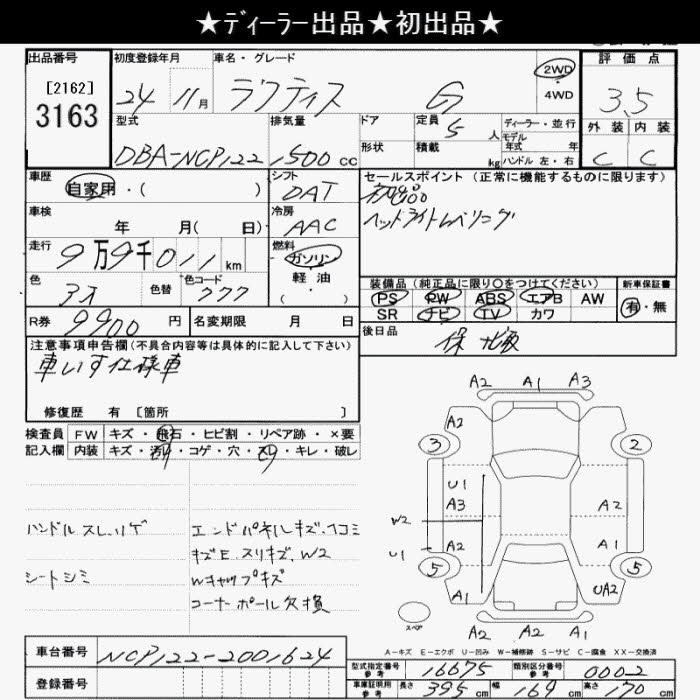 ★ディーラー出品★初出品★
出品番号 初度登録年月 車名・グレード 評価点
[2162]
3163
24 11月 ラクティス G 2WD
・
4WD
3.5
型式 排気量 ドア 定員 5人 ディーラー・並行
モデル
年式 年
形状 積載 kg ハンドル 左・右
外装 内装
C C
DBA-NCP122 1500 cc
車歴 シフト セールスポイント (正常に機能するものに限ります)
自家用・( ) DAT 初出品
ヘッドライトレベリング
車検 冷房
年 月( 日) AAC
走行 燃料
9万9千011km ガソリン
・
軽油
( )
装備品(純正品に限り○をつけてください) 新車保証書
PS PW ABS エアB AW 有・無
SR ナビ TV カワ
色 色替 色コード
777
R券 9900円 名変期限 月 日
後日品
注意事項申告欄(不具合内容等は具体的に記入して下さい)
車いす仕様車
修復歴 有 [箇所 ]
検査員 FW キズ・飛石・ヒビ割・リペア跡・×要
記入欄 内装 キズ・汚れ・コゲ・穴・スレ・キレ・破レ
ハンドルスレ、リゲ エンドパネルキズ、ココミ
キズE スリキズ、W2
シートシミ Wキャップキズ
コーナーポール欠損
A2 A1 A3
A2
3 2
U1
A3 A2
W2
U1 A2 A1
5 5
A1 UA2
A1
A2 A2 A1
スペア
A-キズ E-エクボ U-凹み W-補修跡 S-サビ C-腐食 XX-交換済
車台番号 NCP122-2001624
登録番号
型式指定番号 参考 16675 類別区分番号 参考 0002
車庫証明用 参考 長さ 395cm 幅 169cm 高さ 170cm